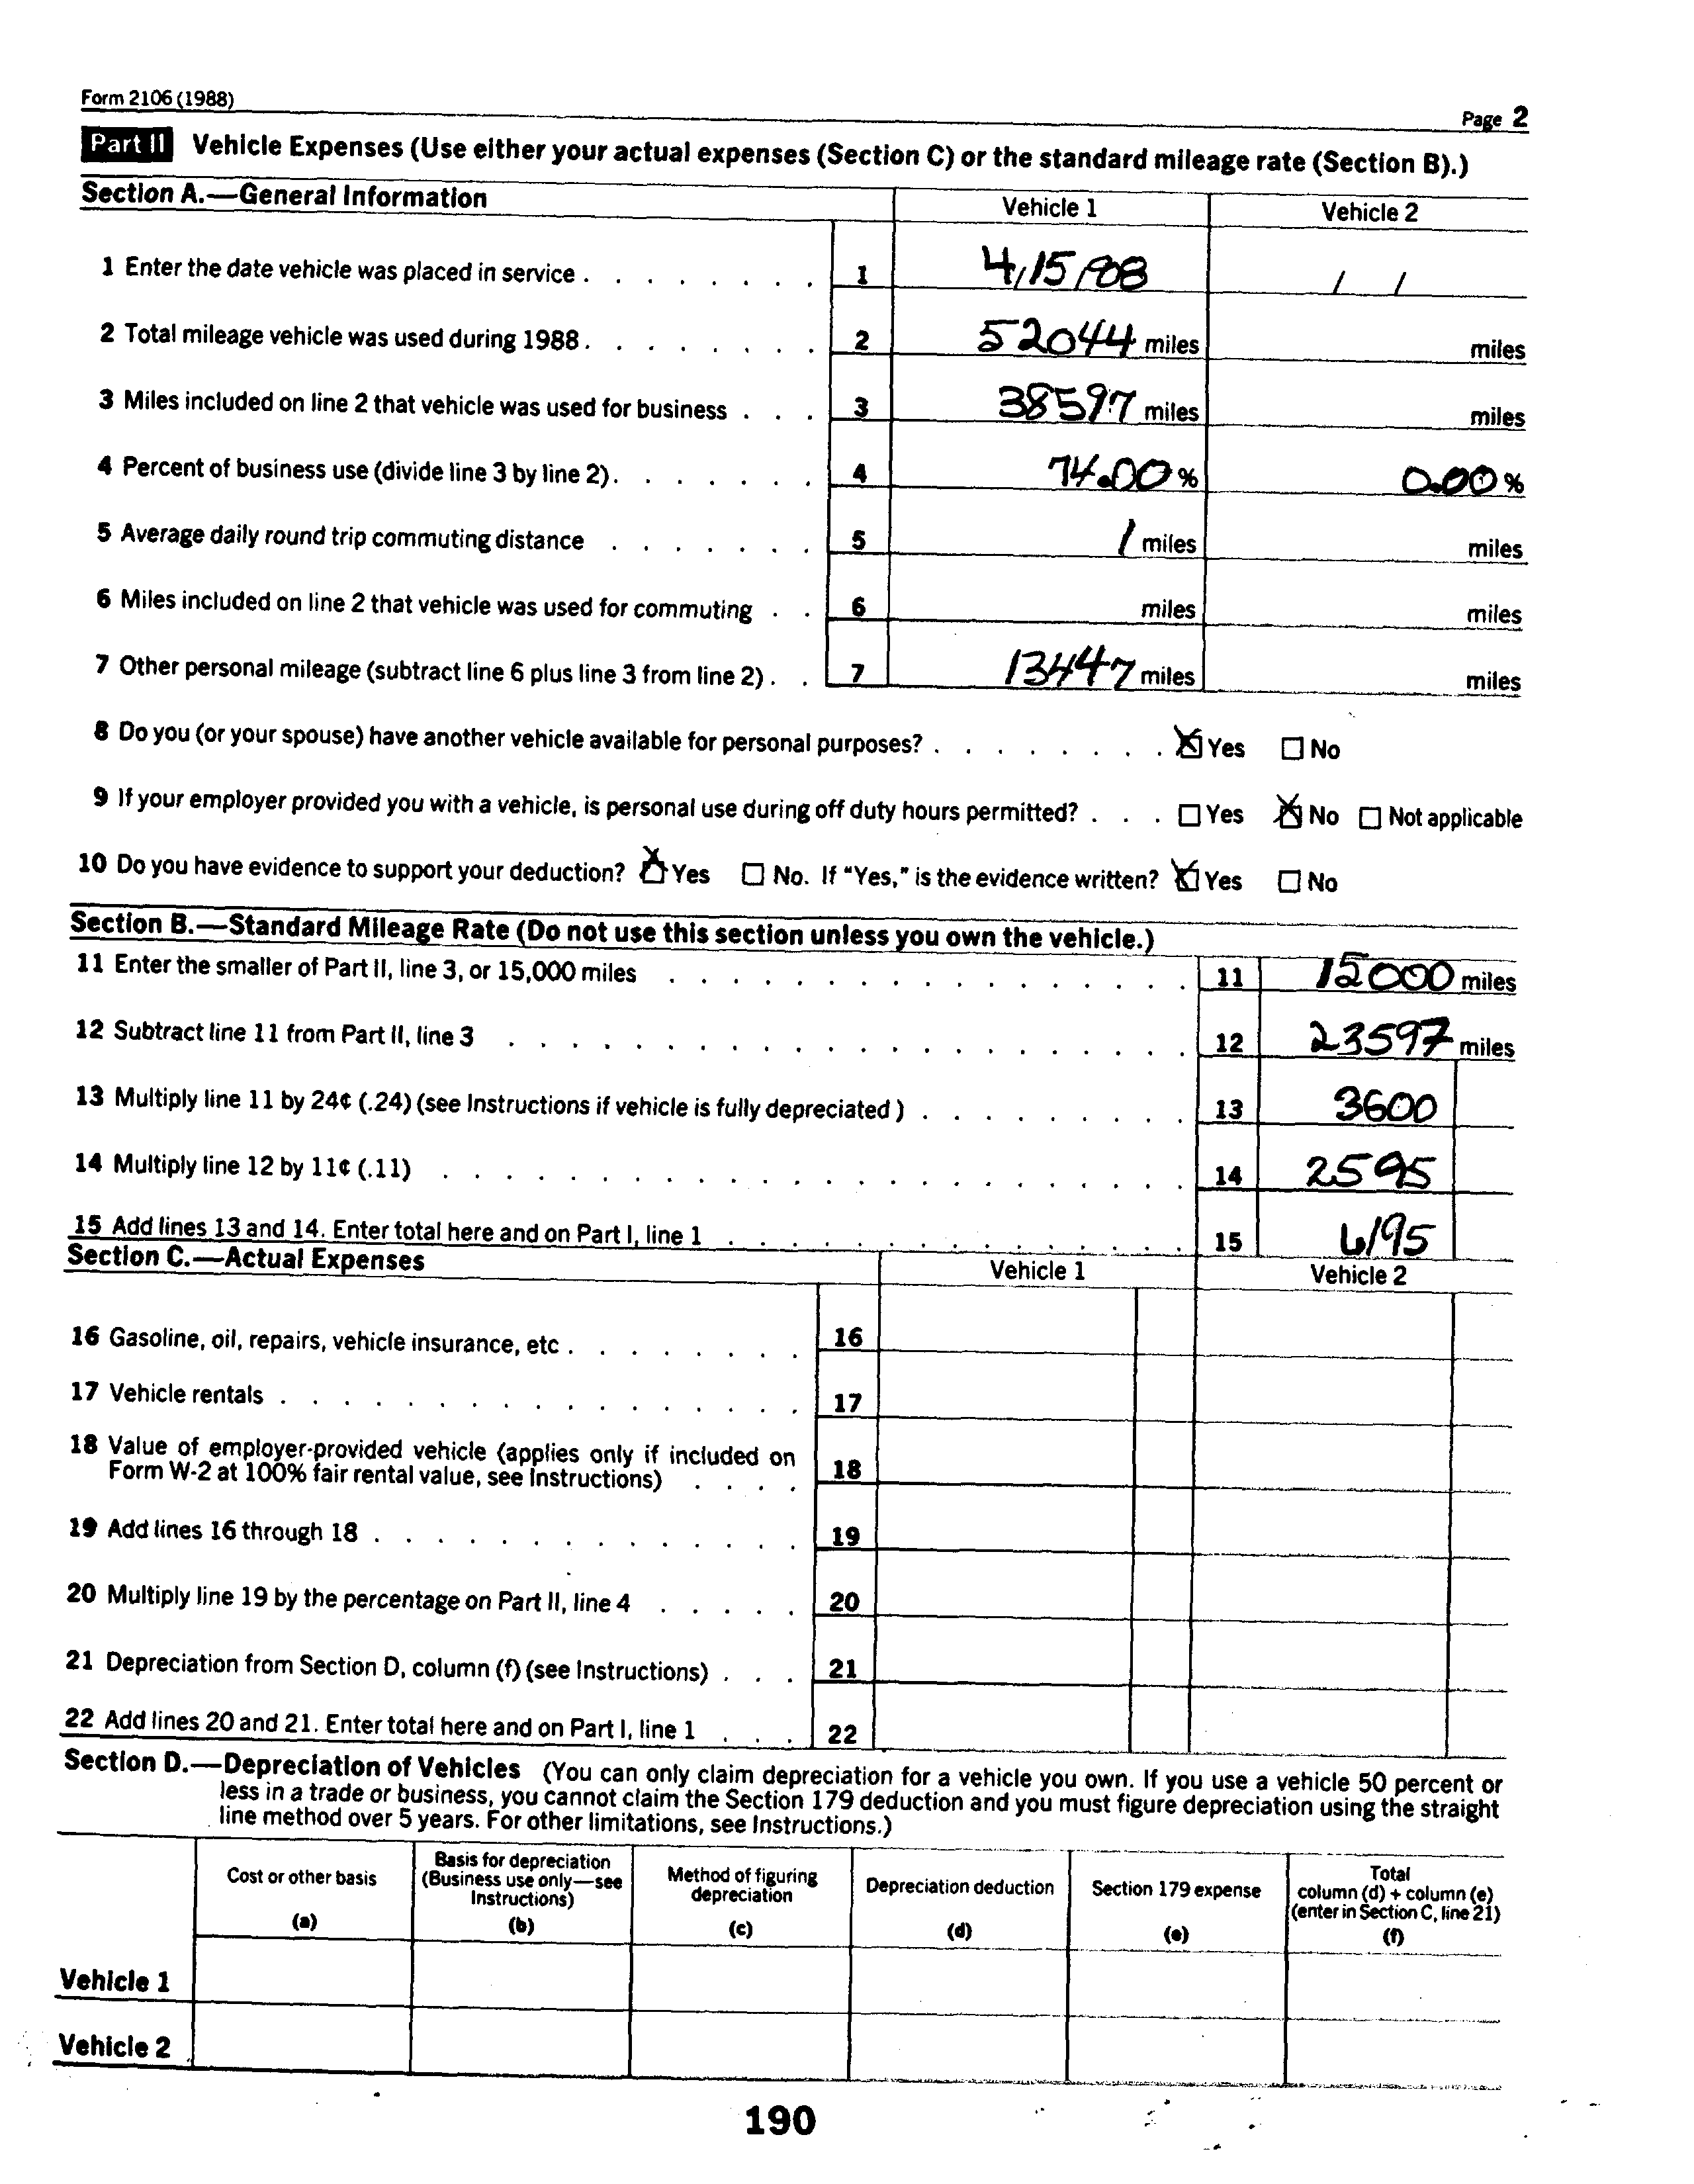 Form 2106 (1988)
Page 2
Part II Vehicle Expenses (Use either your actual expenses (Section C) or the standard mileage rate (Section B).)
Section A.—General Information
Vehicle 1 Vehicle 2
1 Enter the date vehicle was placed in service . . . . . . . . 1 4/15/88 / /
2 Total mileage vehicle was used during 1988 . . . . . . . . 2 52044 miles miles
3 Miles included on line 2 that vehicle was used for business . . . 3 38597 miles miles
4 Percent of business use (divide line 3 by line 2) . . . . . . . 4 74.00 % 0.00 %
5 Average daily round trip commuting distance . . . . . . . 5 1 miles miles
6 Miles included on line 2 that vehicle was used for commuting . . 6 miles miles
7 Other personal mileage (subtract line 6 plus line 3 from line 2) . . 7 13447 miles miles
8 Do you (or your spouse) have another vehicle available for personal purposes? . . . . . . . . ☒ Yes ☐ No
9 If your employer provided you with a vehicle, is personal use during off duty hours permitted? . . . ☐ Yes ☒ No ☐ Not applicable
10 Do you have evidence to support your deduction? ☒ Yes ☐ No. If "Yes," is the evidence written? ☒ Yes ☐ No
Section B.—Standard Mileage Rate (Do not use this section unless you own the vehicle.)
11 Enter the smaller of Part II, line 3, or 15,000 miles . . . . . . . . . . . . . . . . . 11 15000 miles
12 Subtract line 11 from Part II, line 3 . . . . . . . . . . . . . . . . . . . . . . 12 23597 miles
13 Multiply line 11 by 24¢ (.24) (see Instructions if vehicle is fully depreciated ) . . . . . . . . . 13 3600
14 Multiply line 12 by 11¢ (.11) . . . . . . . . . . . . . . . . . . . . . . . . 14 2595
15 Add lines 13 and 14. Enter total here and on Part I, line 1 . . . . . . . . . . . . . . . 15 6195
Section C.—Actual Expenses
Vehicle 1 Vehicle 2
16 Gasoline, oil, repairs, vehicle insurance, etc . . . . . . . . 16
17 Vehicle rentals . . . . . . . . . . . . . . . . . 17
18 Value of employer-provided vehicle (applies only if included on
Form W-2 at 100% fair rental value, see Instructions) . . . . 18
19 Add lines 16 through 18 . . . . . . . . . . . . . . 19
20 Multiply line 19 by the percentage on Part II, line 4 . . . . . 20
21 Depreciation from Section D, column (f) (see Instructions) . . . 21
22 Add lines 20 and 21. Enter total here and on Part I, line 1 . . . 22
Section D.—Depreciation of Vehicles (You can only claim depreciation for a vehicle you own. If you use a vehicle 50 percent or
less in a trade or business, you cannot claim the Section 179 deduction and you must figure depreciation using the straight
line method over 5 years. For other limitations, see Instructions.)
Cost or other basis
(a)
Basis for depreciation
(Business use only—see
Instructions)
(b)
Method of figuring
depreciation
(c)
Depreciation deduction
(d)
Section 179 expense
(e)
Total
column (d) + column (e)
(enter in Section C, line 21)
(f)
Vehicle 1
Vehicle 2
190